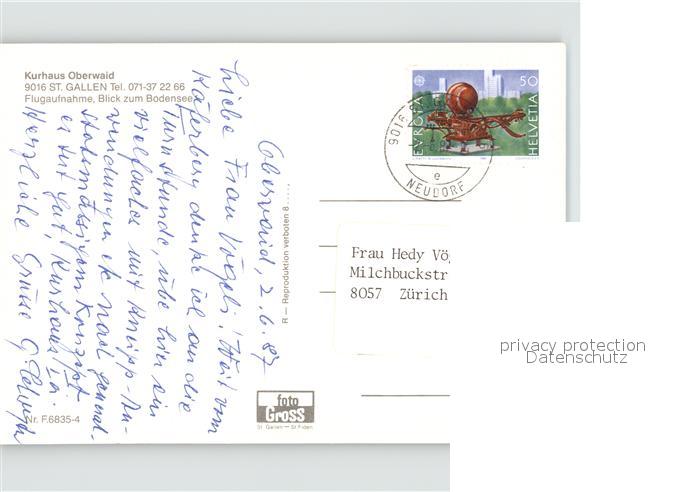 Kurhaus Oberwaid
9016 ST. GALLEN Tel. 071-37 22 66
Flugaufnahme, Blick zum Bodensee
Oberwaid, 2.6.87
Liebe Frau Vögeli! Weit vom
Käferberg denke ich an die
Turnstunde, übe hier ein
vielfaches mit Kneipp-An-
wendungen etc nach ganzheit-
Konzept
es tut gut, Kurhaus
Herzliche Grüsse G.
Nr. F.6835-4
R — Reproduktion verboten 8.....
foto
Gross
St. Gallen — St. Fiden
EUROPA
HELVETIA
50
9016
e
NEUDORF
Frau Hedy Vög
Milchbuckstr
8057 Zürich
privacy protection
Datenschutz